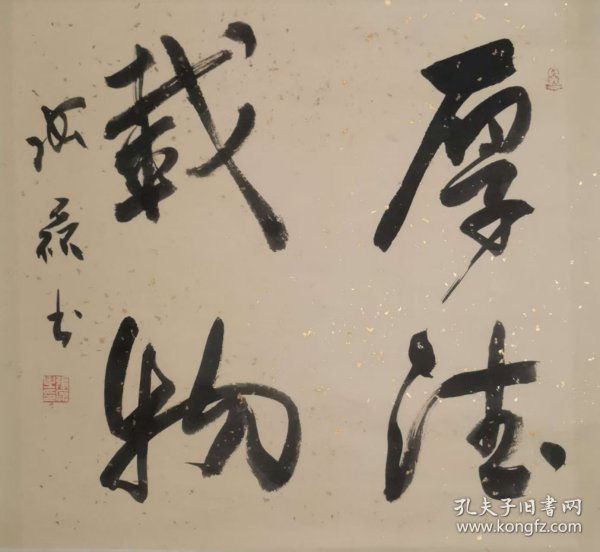 厚德
載物
书
孔夫子旧書网
www.kongfz.com